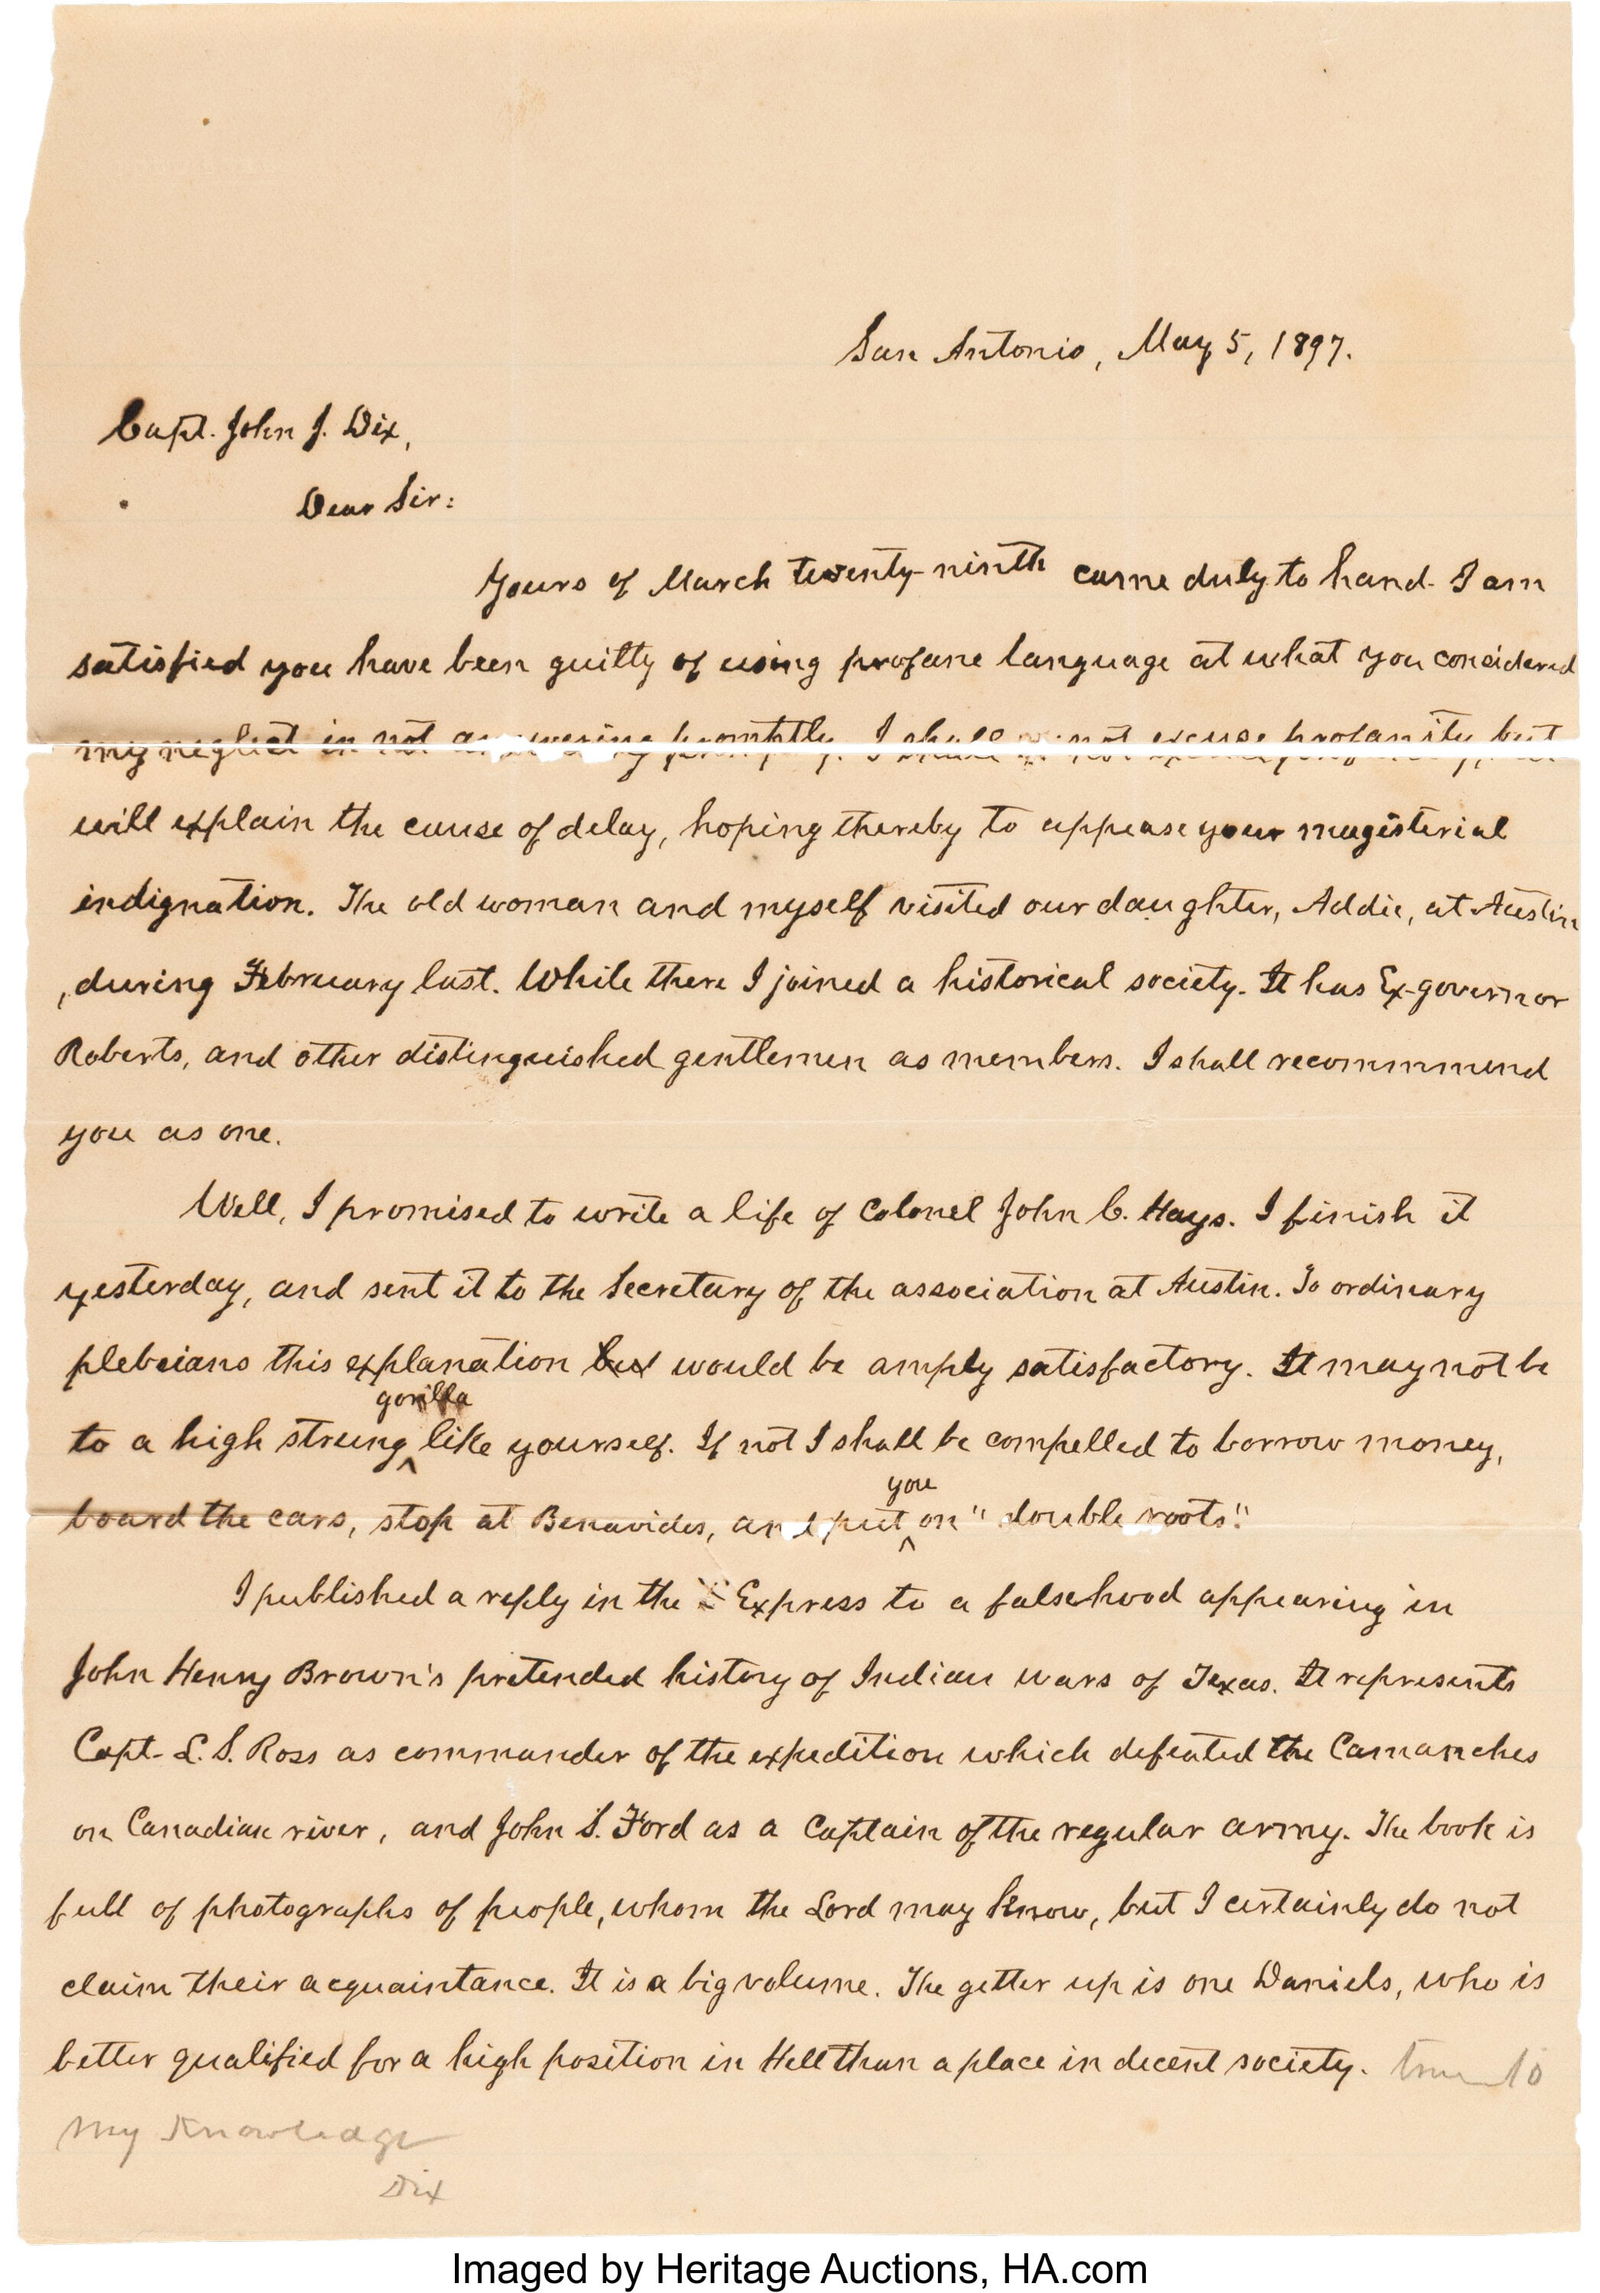 San Antonio, May 5, 1897.
Capt. John J. Dix,
Dear Sir:
Yours of March twenty-ninth came duly to hand. I am
satisfied you have been guilty of using profane language at what you considered
my neglect in not answering promptly. I shall not excuse profanity, but
will explain the cause of delay, hoping thereby to appease your magisterial
indignation. The old woman and myself visited our daughter, Addie, at Austin
, during February last. While there I joined a historical society. It has Ex-governor
Roberts, and other distinguished gentlemen as members. I shall recommmend
you as one.
Well, I promised to write a life of Colonel John C. Hays. I finish it
yesterday, and sent it to the Secretary of the association at Austin. To ordinary
plebeians this explanation but would be amply satisfactory. It may not be
gorilla
to a high strung like yourself. If not I shall be compelled to borrow money,
you
board the cars, stop at Benavides, and put on "double roots."
I published a reply in the Express to a falsehood appearing in
John Henry Brown's pretended history of Indian wars of Texas. It represents
Capt. L. S. Ross as commander of the expedition which defeated the Camanches
on Canadian river, and John S. Ford as a Captain of the regular army. The book is
full of photographs of people, whom the Lord may know, but I certainly do not
claim their acquaintance. It is a big volume. The getter up is one Daniels, who is
better qualified for a high position in Hell than a place in decent society. true to
My Knowledge
Dix
Imaged by Heritage Auctions, HA.com